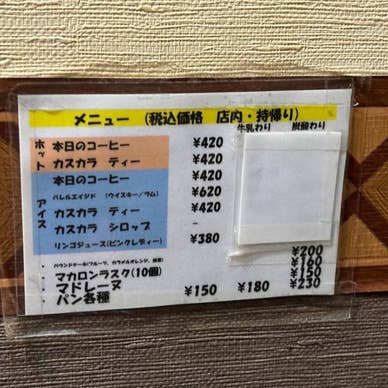 メニュー (税込価格 店内・持帰り)
牛乳わり 炭酸わり
ホット 本日のコーヒー ¥420
カスカラ ティー ¥420
アイス 本日のコーヒー ¥420
バレルエイジド (ウイスキー/ラム) ¥620
カスカラ ティー ¥420
カスカラ シロップ -
リンゴジュース(ピンクレディー) ¥380
¥200
・パウンドケーキ(フルーツ、キャラメルオレンジ、 ¥160
・マカロンラスク(10個) ¥150
・マドレーヌ ¥230
・パン各種 ¥150 ¥180